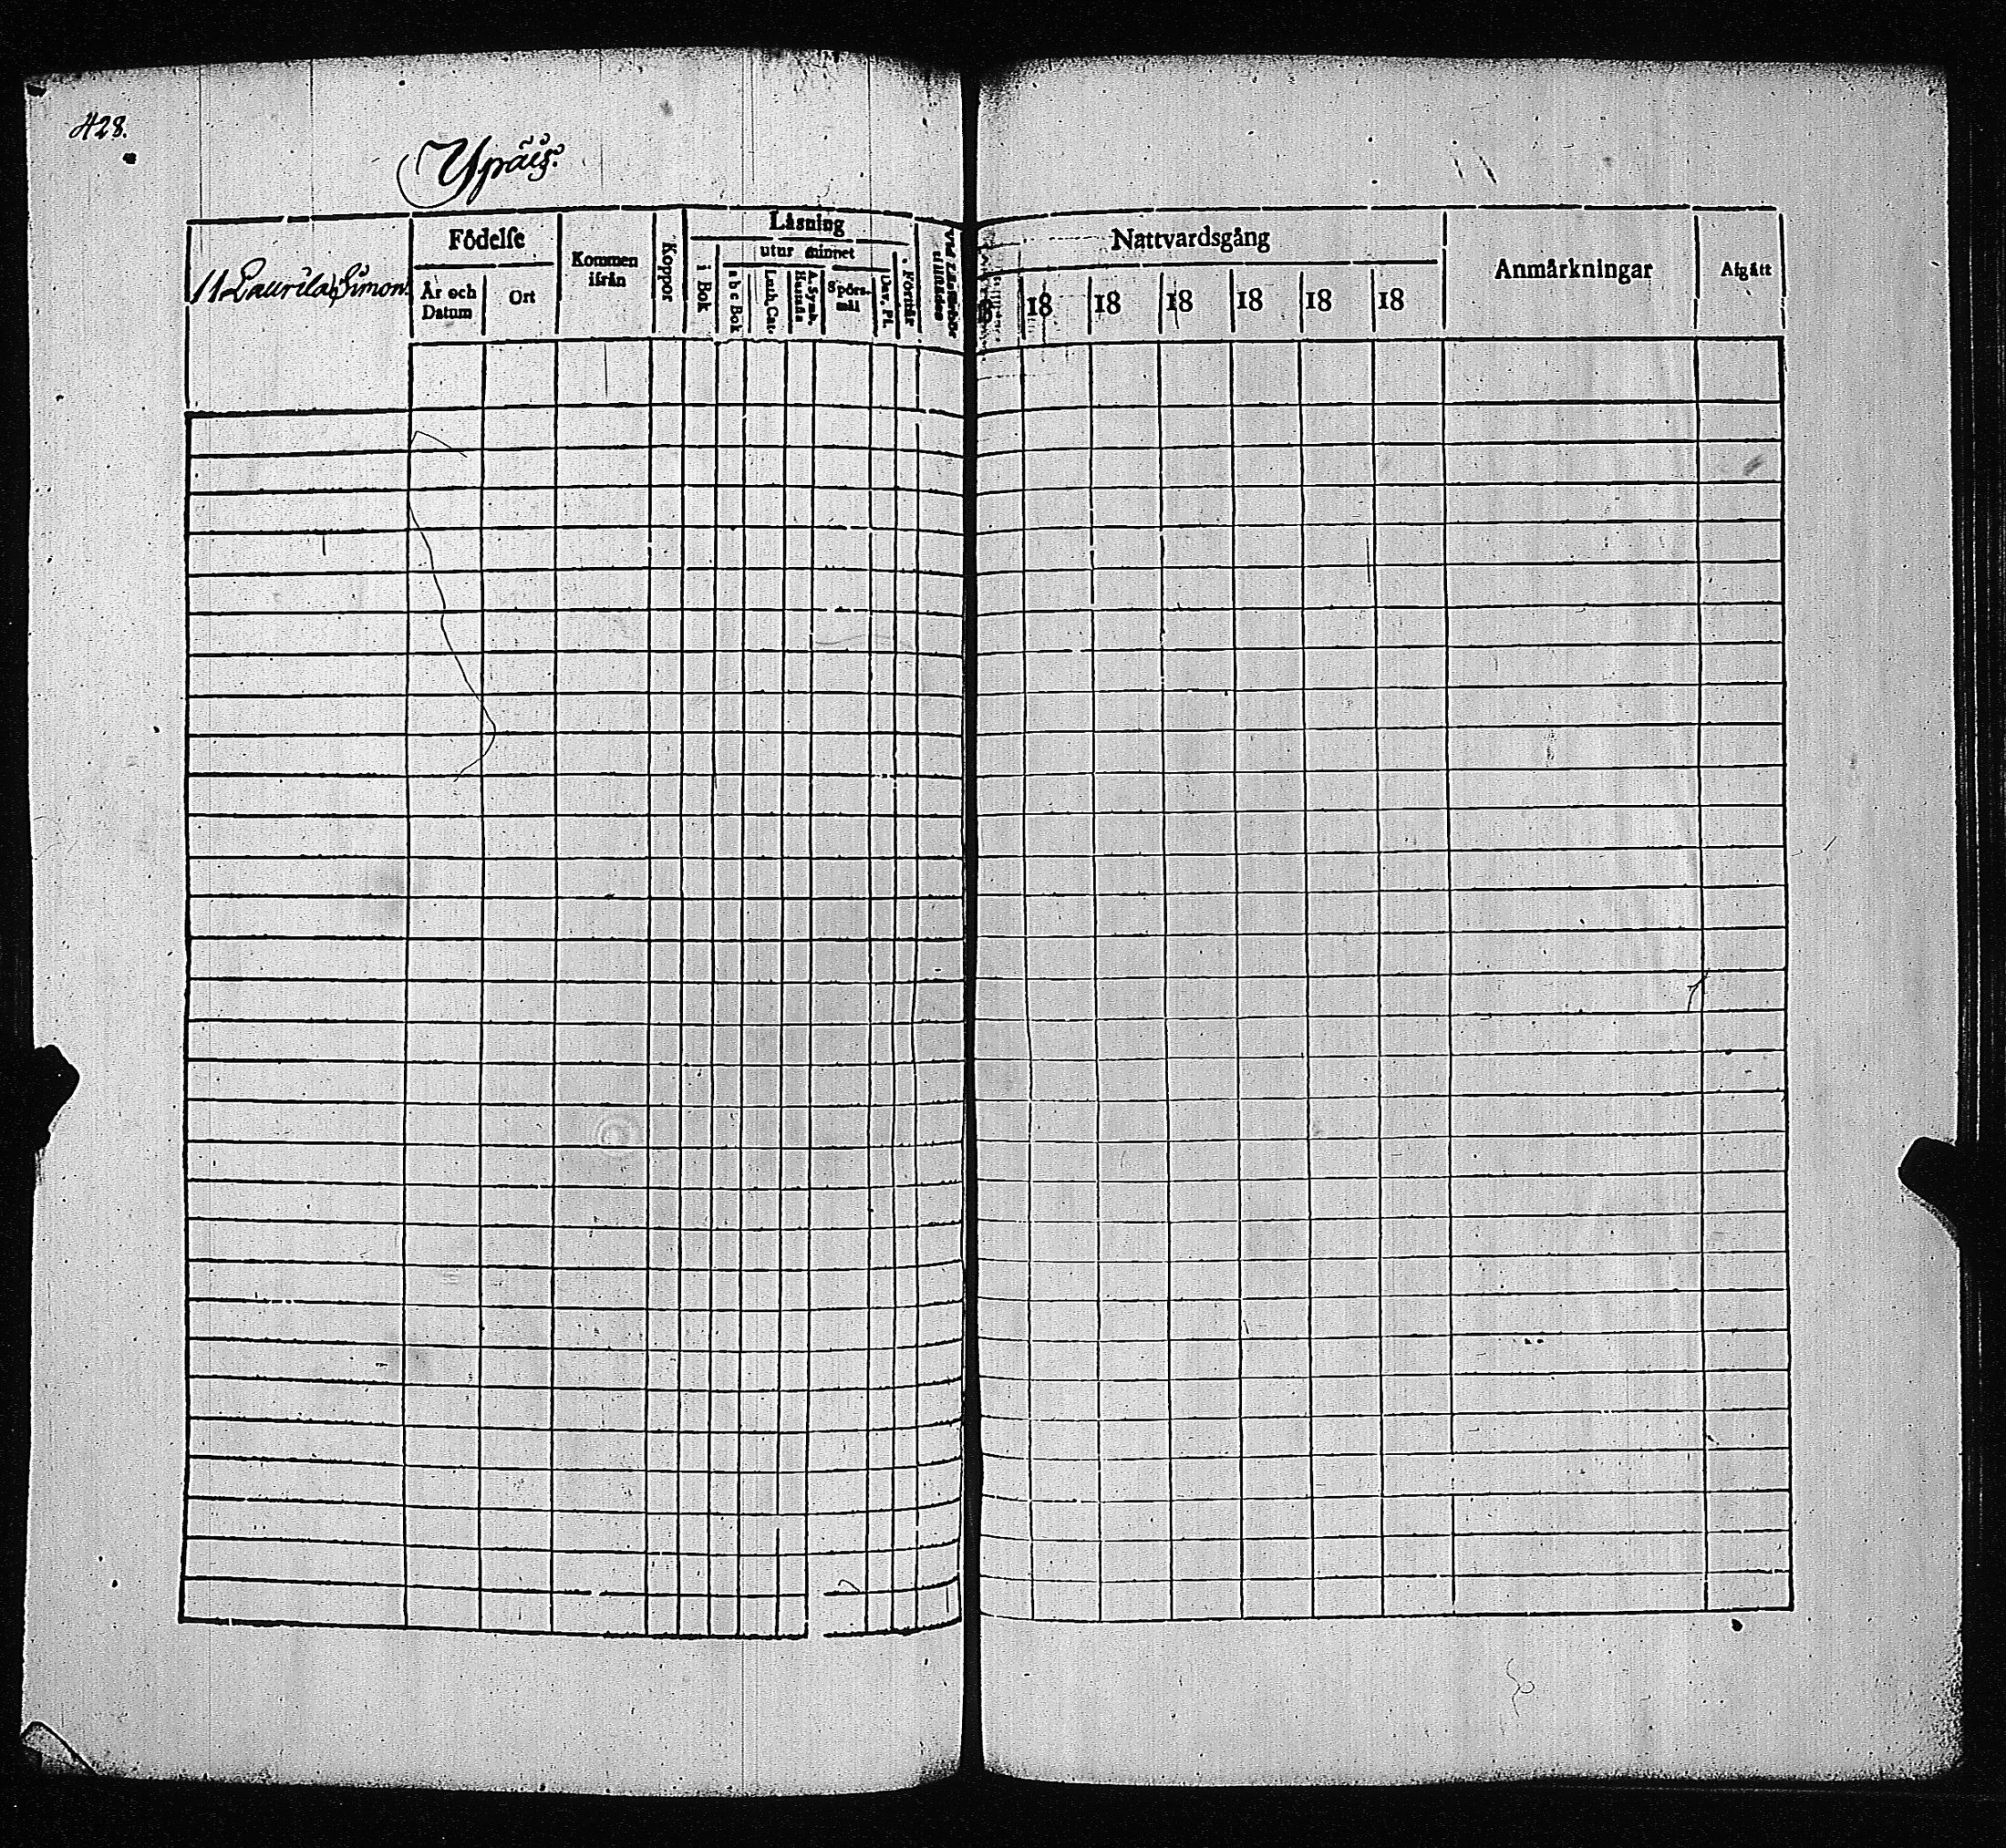 428.
Ypäis.
11. Laurila, Simon
Födelse
År och Datum
Ort
Kommen ifrån
Koppor
Läsning
i Bok
utur minnet
a b c Bok
Luth. Cat.
A. Symb.
Spörsmål
Dav. Ps.
Förstår
Nattvardsgång
18
18
18
18
18
18
18
Anmärkningar
Afgått